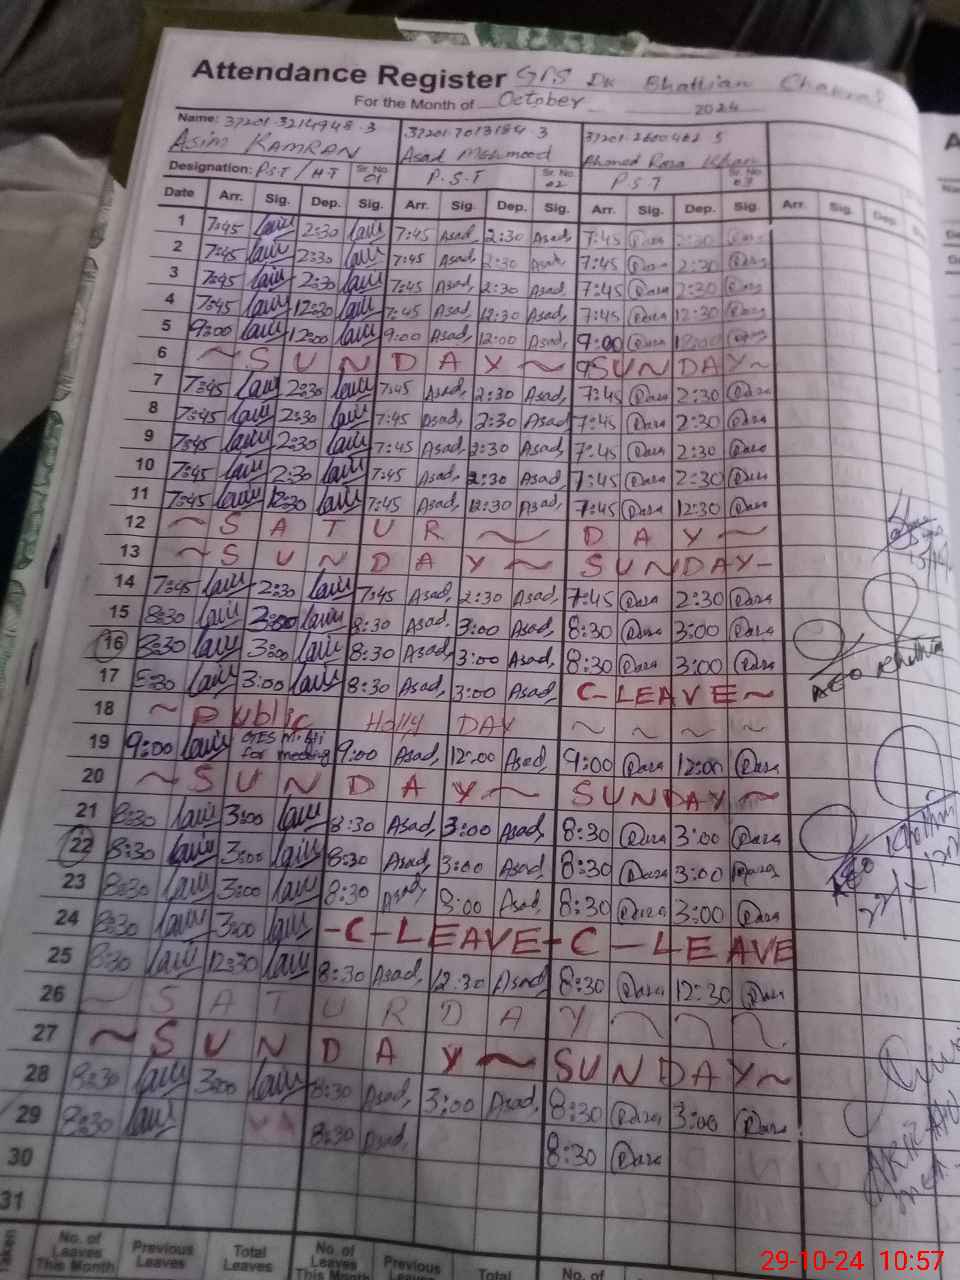 Attendance Register GPS Dk Bhattian Chakral
For the Month of October 2024
Name: 37201-3214948-3 37201-7013184-3 37201-2600462-5
ASIM KAMRAN Asad Mehmood Ahmed Raza Khan
Designation: P.S.T / H.T Sr. No. 01 P.S.T Sr. No. 02 P.S.T Sr. No. 03
Date Arr. Sig. Dep. Sig. Arr. Sig. Dep. Sig. Arr. Sig. Dep. Sig. Arr. Sig. Dep.
1 7:45 2:30 7:45 Asad 2:30 Asad 7:45 Raza 2:30 Raza
2 7:45 2:30 7:45 Asad 2:30 Asad 7:45 Raza 2:30 Raza
3 7:45 2:30 7:45 Asad 2:30 Asad 7:45 Raza 2:30 Raza
4 7:45 12:30 7:45 Asad 12:30 Asad 7:45 Raza 12:30 Raza
5 9:00 12:00 9:00 Asad 12:00 Asad 9:00 Raza 12:00 Raza
6 ~ S U N D A Y ~ SUNDAY ~
7 7:45 2:30 7:45 Asad 2:30 Asad 7:45 Raza 2:30 Raza
8 7:45 2:30 7:45 Asad 2:30 Asad 7:45 Raza 2:30 Raza
9 7:45 2:30 7:45 Asad 2:30 Asad 7:45 Raza 2:30 Raza
10 7:45 2:30 7:45 Asad 2:30 Asad 7:45 Raza 2:30 Raza
11 7:45 12:30 7:45 Asad 12:30 Asad 7:45 Raza 12:30 Raza
12 ~ S A T U R ~ D A Y ~
13 ~ S U N D A Y ~ SUNDAY -
14 7:45 2:30 7:45 Asad 2:30 Asad 7:45 Raza 2:30 Raza
15 8:30 3:00 8:30 Asad 3:00 Asad 8:30 Raza 3:00 Raza
16 8:30 3:00 8:30 Asad 3:00 Asad 8:30 Raza 3:00 Raza
17 8:30 3:00 8:30 Asad 3:00 Asad C-LEAVE ~
18 ~ Public Holly DAY ~ ~ ~ ~
19 9:00 for meeting 9:00 Asad 12:00 Asad 9:00 Raza 12:00 Raza
20 ~ S U N D A Y ~ SUNDAY ~
21 8:30 3:00 8:30 Asad 3:00 Asad 8:30 Raza 3:00 Raza
22 8:30 3:00 8:30 Asad 3:00 Asad 8:30 Raza 3:00 Raza
23 8:30 3:00 8:30 Asad 3:00 Asad 8:30 Raza 3:00 Raza
24 8:30 3:00 -C-LEAVE- C-LEAVE
25 8:30 12:30 8:30 Asad 12:30 Asad 8:30 Raza 12:30 Raza
26 ~ S A T U R D A Y ~ ~ ~
27 ~ S U N D A Y ~ SUNDAY ~
28 8:30 3:00 8:30 Asad 3:00 Asad 8:30 Raza 3:00 Raza
29 8:30 8:30 Asad 8:30 Raza
30
31
No. of Leaves This Month Previous Leaves Total Leaves No. of Leaves This Month Previous Leaves Total No. of
29-10-24 10:57